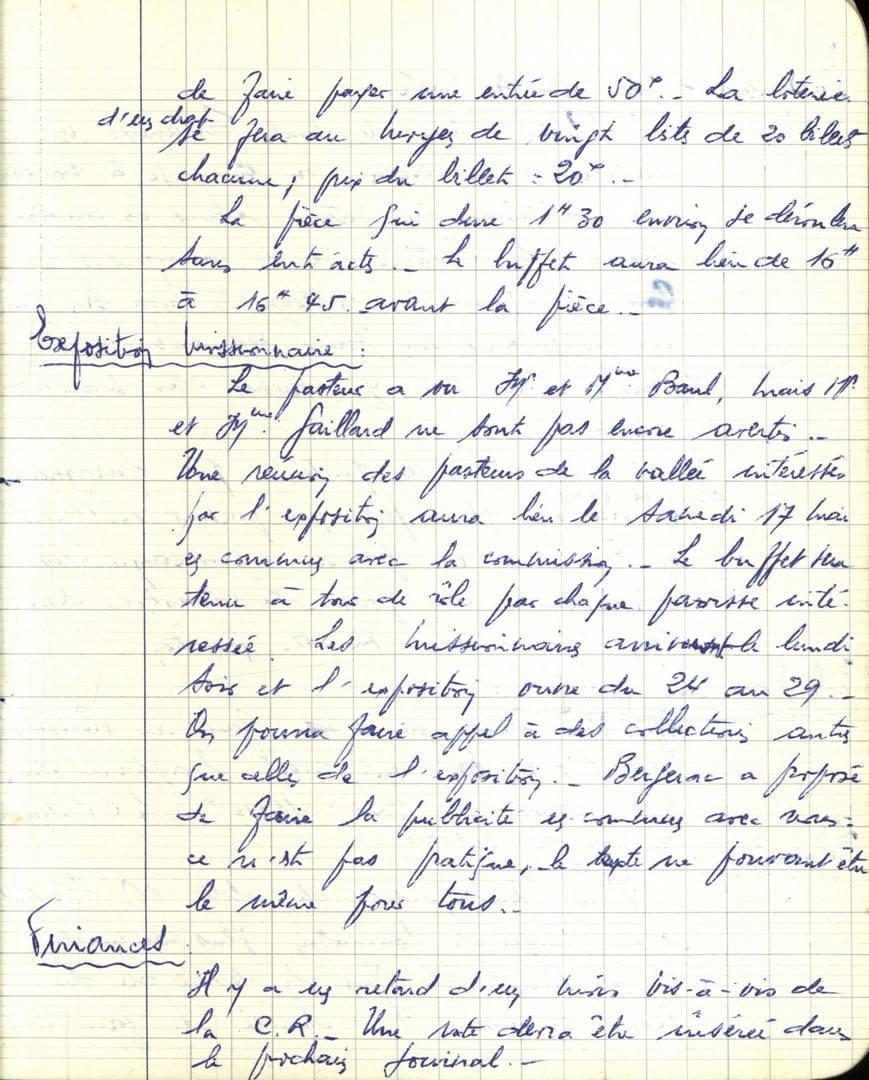 de faire payer une entrée de 50F. - La loterie
d'un chat
se fera au moyen de vingt lots de 20 billets
chacune ; prix du billet : 20F. -
La pièce qui dure 1H 30 environ se déroulera
sans entr'acte. - Le buffet aura lieu de 16H
à 16H 45 avant la pièce. -
Exposition missionnaire :
Le pasteur a vu Mr et Mme Baul, mais Mr
et Mme Gaillard ne sont pas encore avertis. -
Une réunion des pasteurs de la vallée intéressés
par l'exposition aura lieu le Samedi 17 mai
en commun avec la commission. - Le buffet sera
tenu à tour de rôle par chaque paroisse inté-
ressée. Les missionnaires arrivent le lundi
soir et l'exposition ouvre du 24 au 29. -
On pourra faire appel à des collections autres
que celles de l'exposition. - Bergerac a proposé
de faire la publicité en commun avec nous =
ce n'est pas pratique, le texte ne pouvant être
le même pour tous. -
Finances.
Il y a un retard d'un mois vis-à-vis de
la C.R. - Une note devra être insérée dans
le prochain journal. -